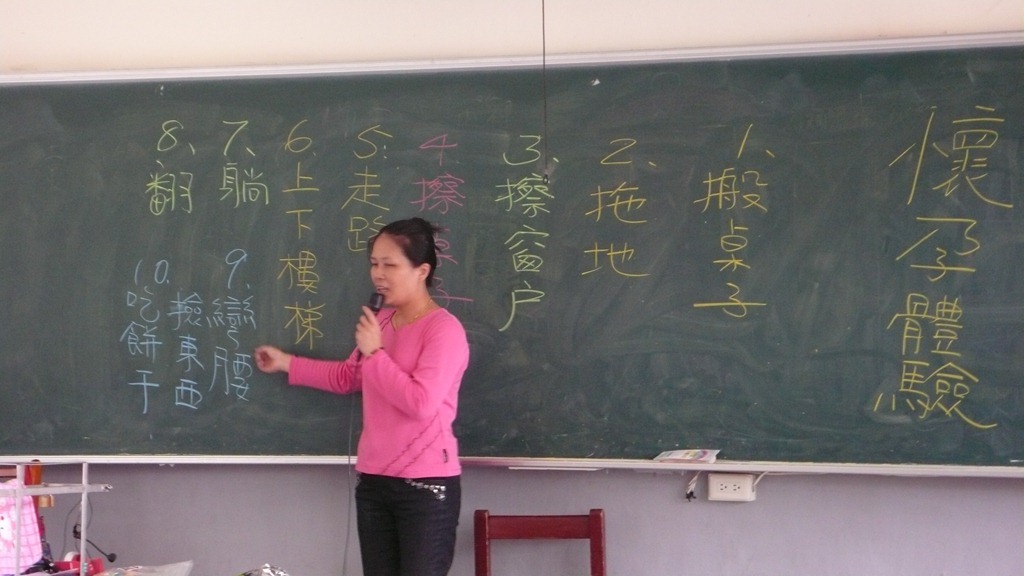 懷孕體驗
1、搬桌子
2、拖地
3、擦窗户
4、擦桌子
5、走路
6、上下樓梯
7、躺
8、翻
9、彎腰
撿東西
10、吃餅干